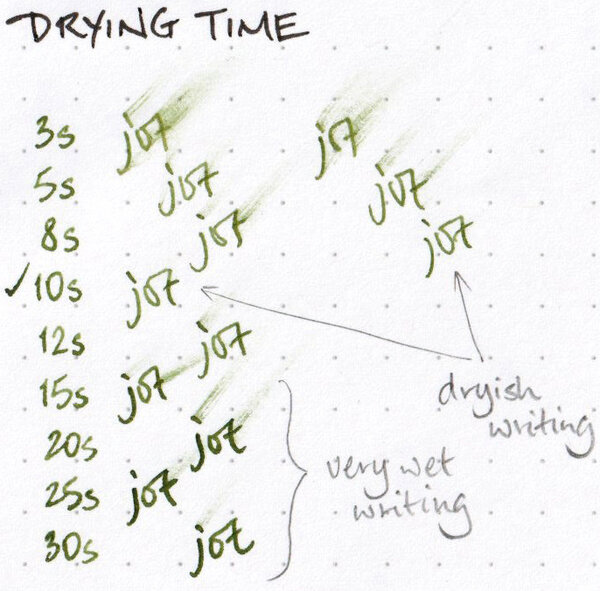 DRYING TIME
3s jot jot
5s jot jot
8s jot jot
✓10s jot
12s jot
15s jot
20s jot
25s jot
30s jot
dryish
writing
very wet
writing